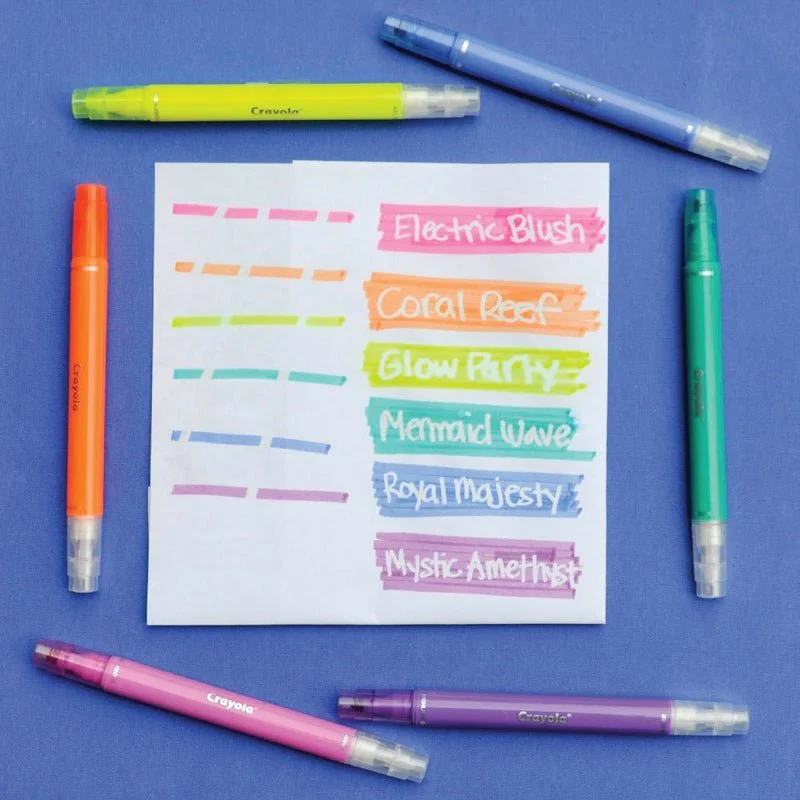 Crayola
Crayola
Electric Blush
Crayola
Coral Reef
Glow Party
Crayola
Mermaid Wave
Royal Majesty
Mystic Amethyst
Crayola
Crayola